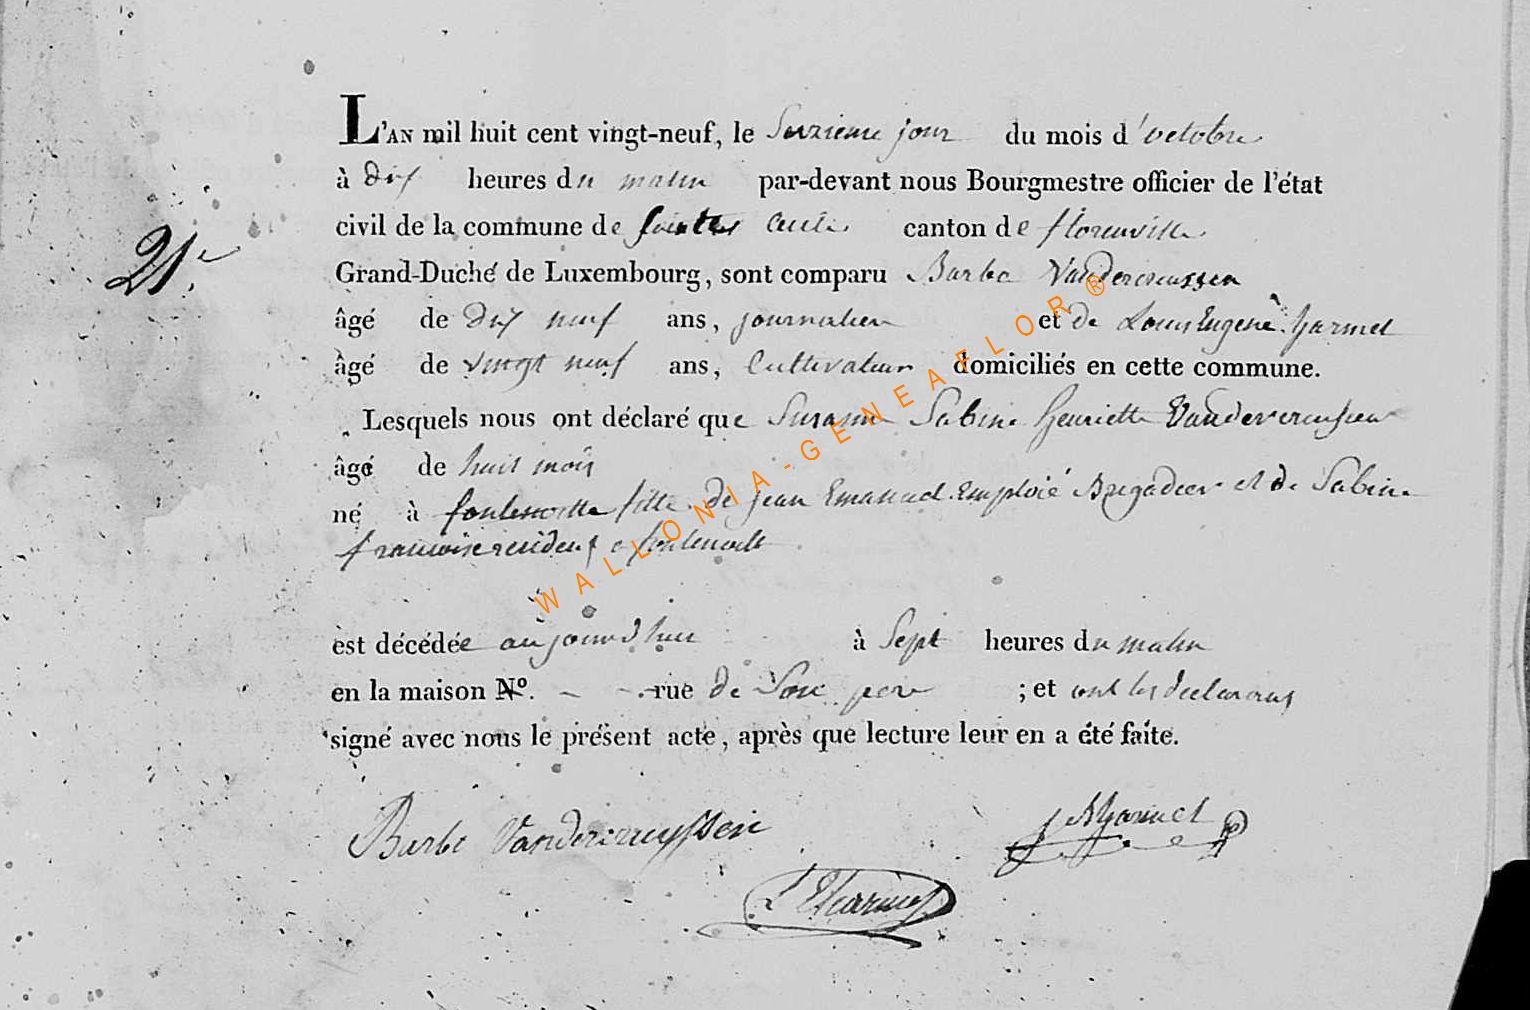 L'AN mil huit cent vingt-neuf, le Seizieme jour du mois d'octobre
à dix heures du matin par-devant nous Bourgmestre officier de l'état
civil de la commune de Sainte Cecile canton de florenville
21e
Grand-Duché de Luxembourg, sont comparu Barbe Vandercruyssen
âgé de dix neuf ans, journalier et de Louis Eugene harmel
âgé de vingt neuf ans, Cultivateur domiciliés en cette commune.
Lesquels nous ont déclaré que Susanne Sabine henriette Vandercruyssen
âgé de huit mois
né à fontenoille fille de jean Emanuel Emploié Brigadier et de Sabine
francoise a fontenoille
est décédée aujourd'hui à Sept heures du matin
en la maison N°. - - rue de Son pere ; et ont les declarans
signé avec nous le présent acte, après que lecture leur en a été faite.
Barbe Vandercruyssen
L E harmel
WALLONIA-GENEAFLOR ®